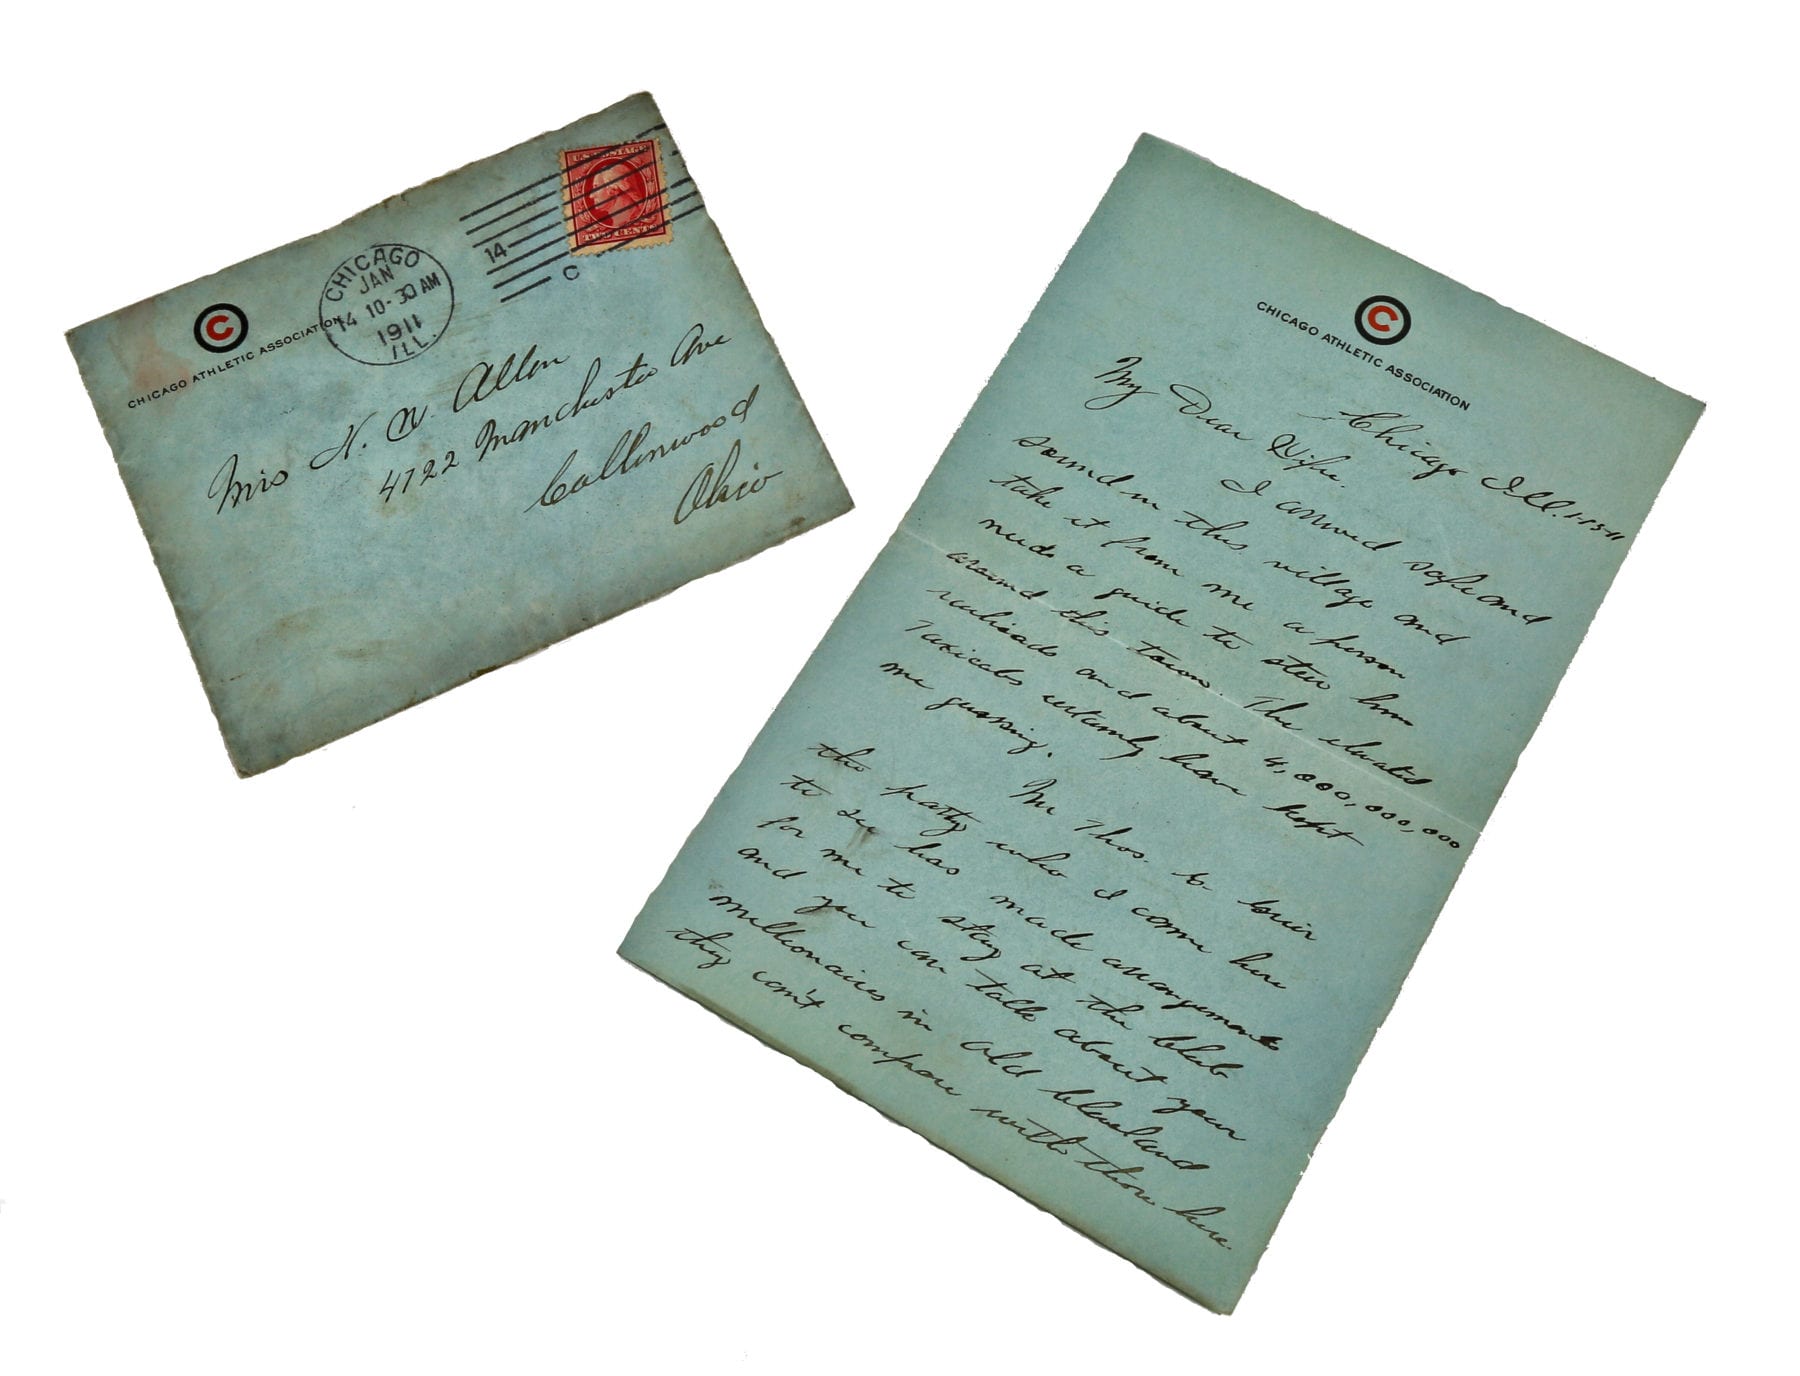 C
CHICAGO ATHLETIC ASSOCIATION
CHICAGO
JAN
14 10-30 AM
1911
ILL.
14
C
U.S. POSTAGE
TWO CENTS
Mrs H. N. Allen
4722 Manchester Ave
Collinwood
Ohio
C
CHICAGO ATHLETIC ASSOCIATION
Chicago Ill. 1-13-11
My Dear Wife.
I arrived safe and
sound in this village and
take it from me a person
needs a guide to steer him
around this town. The elevated
railroads and about 4,000,000,000
Taxicabs certainly have kept
me guessing.
Mr Thos.
the party who I come here
to see has made arrangements
for me to stay at the Club
and you can talk about your
millionaires in Old Cleveland
they can't compare with those here.